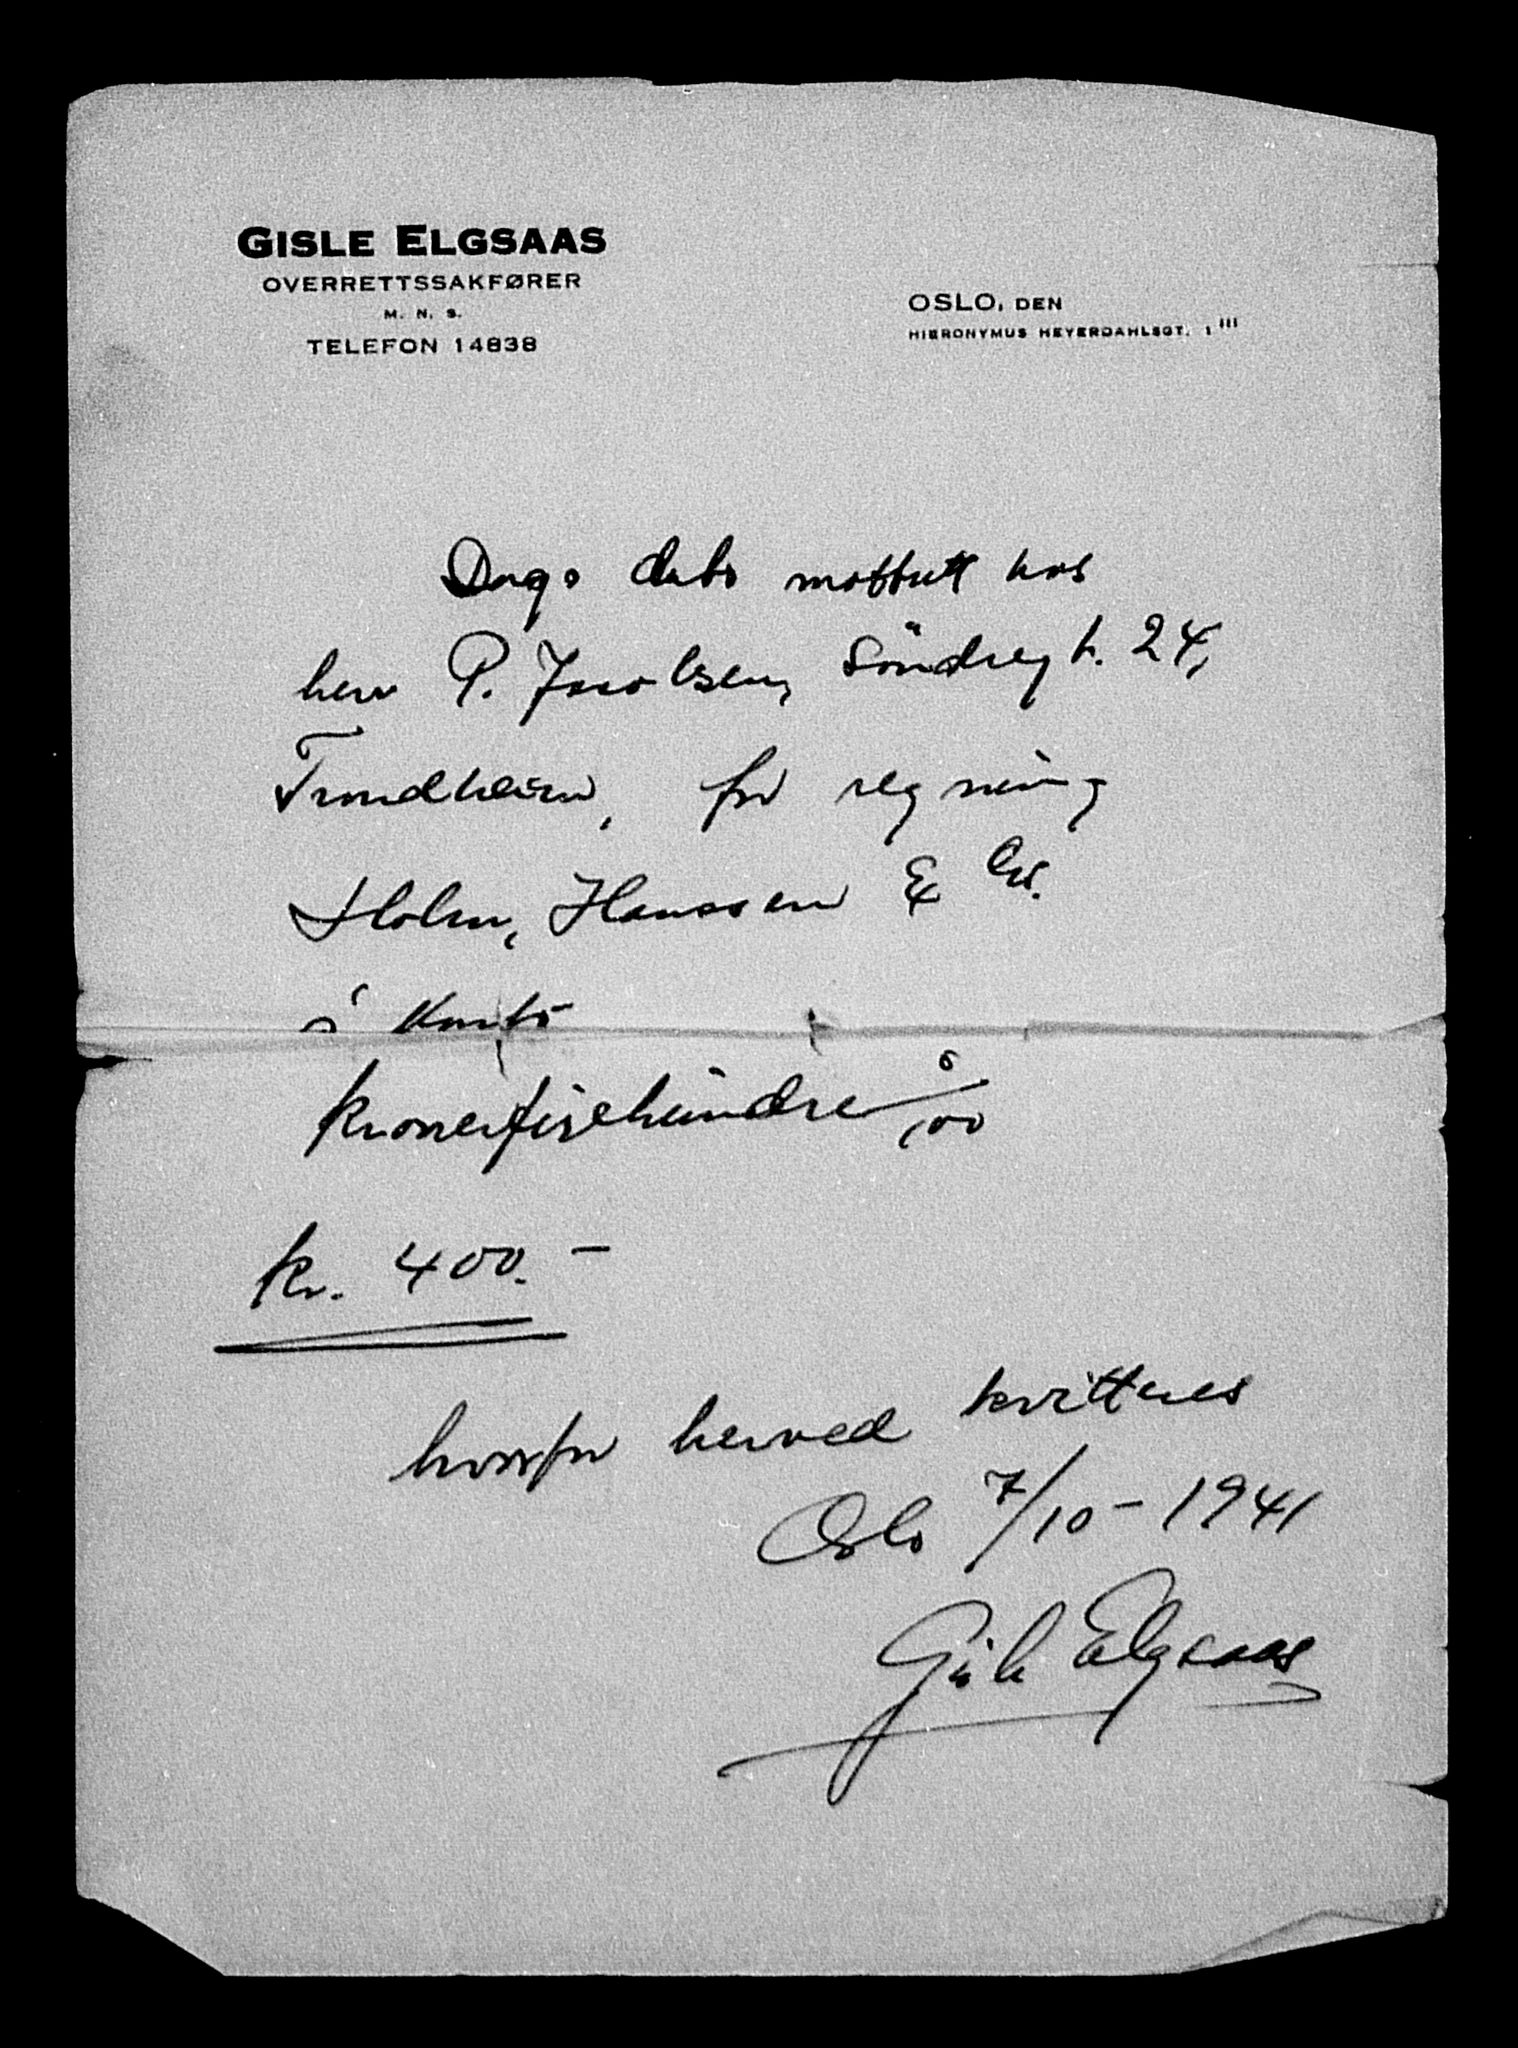 GISLE ELGSAAS
OVERRETTSSAKFØRER
M. N. S.
TELEFON 14838
OSLO, DEN
HIERONYMUS HEYERDAHLSGT. 1 III
Dags dato mottatt hos
herr P. Jacobsen, Söndregt. 24,
Trondheim, for regning
Holm, Hanssen & Co.
á konto
kronerfirehundre 0/00
kr. 400.-
hvorfor herved kvitteres
Oslo 7/10-1941
Gisle Elgsaas